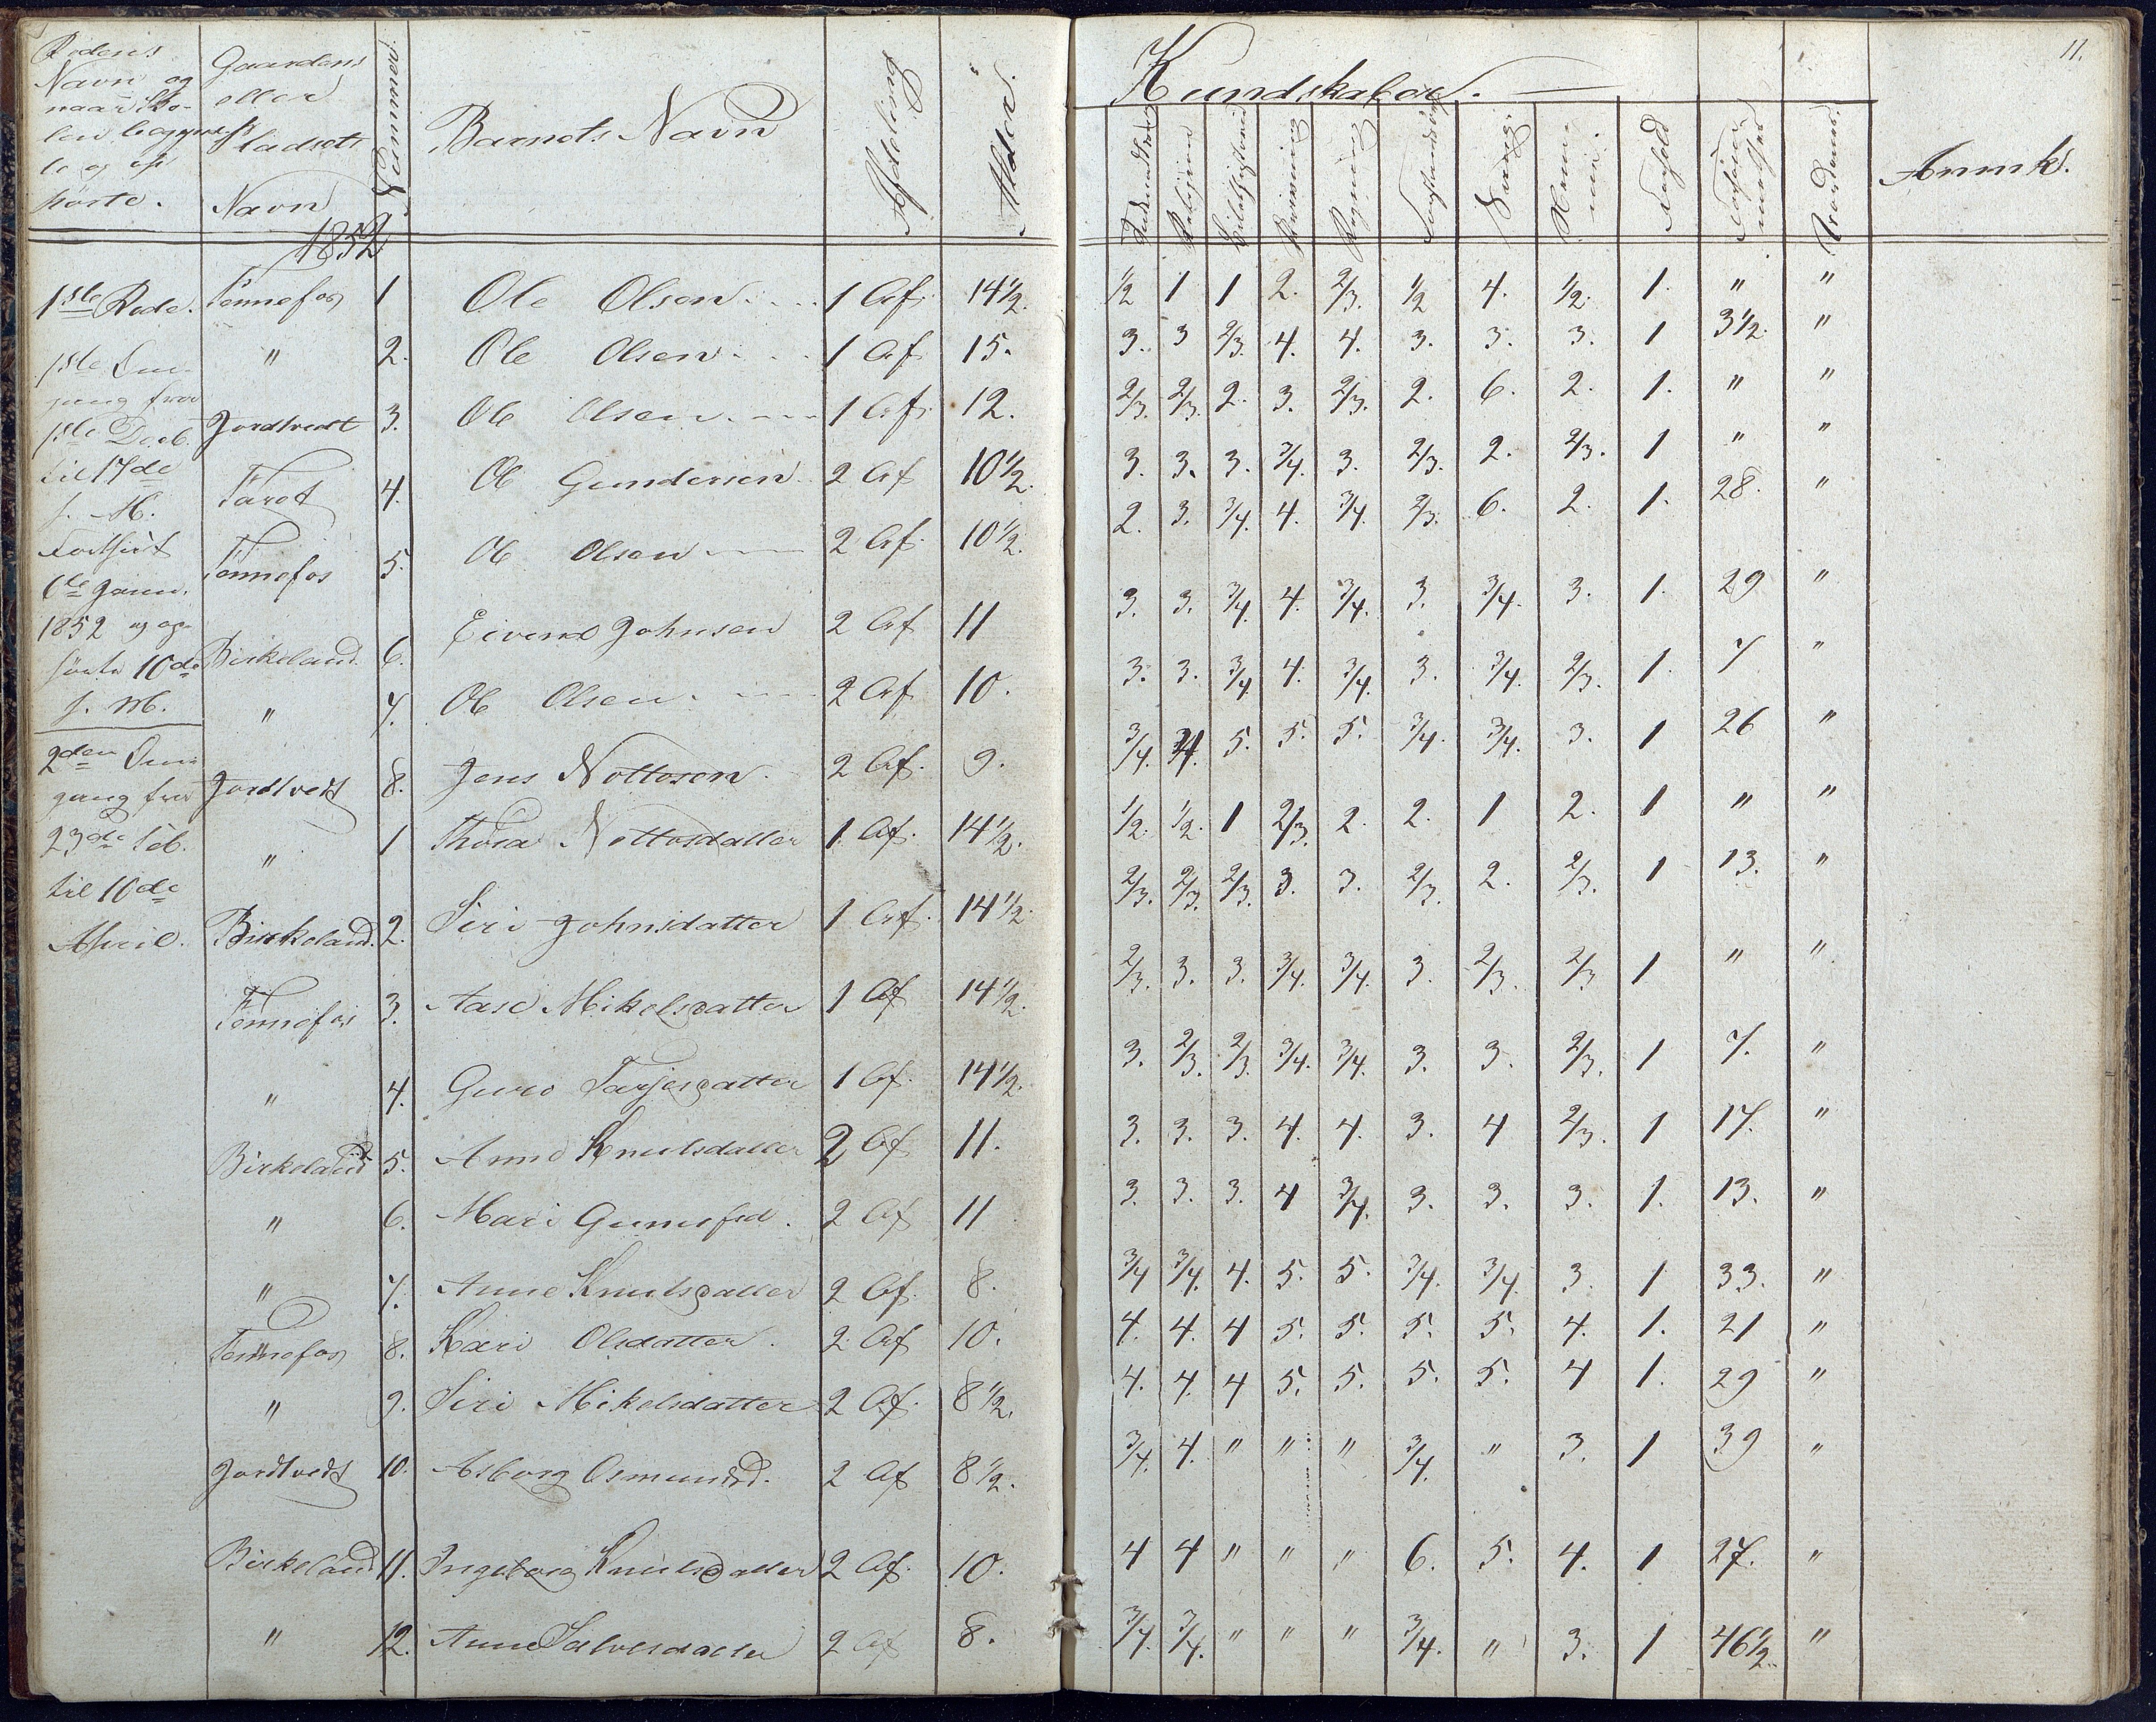 Rodens Navn og naar Skolen begyndte og ophørte. | Gaardens eller Pladsets Navn | Nummer | Barnets Navn | Afdeling | Alder. | Kundskaber. | 11.
Religion | Bibelhistorie | Skrivning | Regning | Sang | Nem | Forhold | Anmk.
1852
1ste Rode. | Tennefos | 1 | Ole Olsen | 1 Af. | 14 1/2. | 1/2 | 1 | 1 | 2. | 2/3. | 1/2 | 4. | 1/2. | 1. | " | "
" | 2. | Ole Olsen | 1 Af | 15. | 3. | 3 | 2/3. | 4. | 4. | 3. | 3. | 3. | 1 | 3 1/2. | "
Jordtvedt | 3. | Ole Olsen | 1 Af. | 12. | 2/3. | 2/3. | 2. | 3. | 2/3. | 2. | 6. | 2. | 1. | " | "
Taret | 4. | Ole Gundersen | 2 Af | 10 1/2. | 3. | 3. | 3. | 3/4. | 3. | 2/3. | 2. | 2/3. | 1 | " | "
Tennefos | 5. | Ole Olsen | 2 Af. | 10 1/2. | 2. | 3. | 3/4. | 4. | 3/4. | 2/3. | 6. | 2. | 1. | 28. | "
Birkeland | 6. | Eivend Johnsen | 2 Af | 11 | 3. | 3. | 3/4. | 4. | 3/4. | 3. | 3/4. | 3. | 1. | 29 | "
" | 7. | Ole Olsen. | 2 Af | 10. | 3. | 3. | 3/4 | 4. | 3/4. | 3. | 3/4. | 2/3. | 1. | 7 | "
Jordtvedt | 8. | Jens Nottosen. | 2 Af. | 9. | 3/4. | 3/4. | 5. | 5. | 5. | 3/4. | 3/4. | 3. | 1 | 26 | "
" | 1 | Thora Nottosdatter | 1 Af. | 14 1/2. | 1/2. | 1/2. | 1 | 2/3. | 2. | 2. | 1 | 2. | 1 | " | "
Birkeland. | 2. | Siri Johnsdatter | 1 Af. | 14 1/2. | 2/3. | 2/3. | 2/3. | 3. | 3. | 2/3. | 2. | 2/3. | 1 | 13. | "
Tennefos | 3. | Aase Mikelsdatter | 1 Af | 14 1/2. | 2/3. | 3. | 3. | 3/4. | 3/4. | 3. | 2/3. | 2/3 | 1 | " | "
" | 4. | Guro Tarjesdatter | 1 Af. | 14 1/2. | 3. | 2/3. | 2/3. | 3/4. | 3/4. | 3. | 3. | 2/3. | 1 | 7. | "
Birkeland | 5. | Anne Knutsdatter | 2 Af | 11. | 3. | 3. | 3. | 4. | 4. | 3. | 4 | 2/3. | 1 | 17. | "
" | 6. | Mari Gunufsd. | 2 Af | 11 | 3. | 3. | 3. | 4 | 3/4. | 3. | 3. | 3. | 1. | 13. | "
" | 7. | Anne Knutsdatter | 2 Af. | 8. | 3/4 | 3/4. | 4. | 5. | 5. | 3/4. | 3/4. | 3. | 1 | 33. | "
Tennefos | 8. | Kari Olsdatter. | 2 Af | 10. | 4. | 4. | 4 | 5. | 5. | 5. | 5. | 4. | 1. | 21 | "
" | 9. | Siri Mikelsdatter | 2 Af. | 8 1/2. | 4. | 4. | 4 | 5. | 5. | 5. | 5. | 4 | 1. | 29 | "
Jordtvedt | 10. | Asborg Osmundsd. | 2 Af | 8 1/2. | 3/4. | 4. | " | " | " | 3/4. | " | 3. | 1 | 39 | "
Birkeland | 11. | Ingeborg Knutsdatter | 2 Af. | 10. | 4 | 4 | " | " | " | 6. | 5. | 4. | 1 | 27. | "
" | 12. | Anne Salvesdatter | 2 Af | 8. | 3/4. | 3/4. | " | " | " | 3/4. | " | 3. | 1 | 46 1/2. | "
1ste Om-
gang fra
1ste Decb.
til 17de
s. M.
Fortsat
6te Janu.
1852 og op-
hørte 10de
s. M.
2den Om-
gang fra
23de Feb.
til 10de
April.